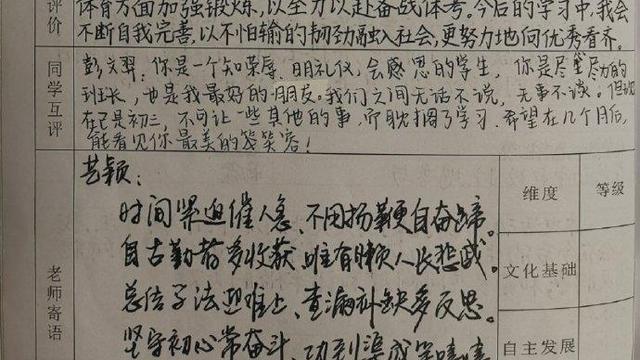 评价
体育方面加强锻炼,以全力以赴备战体考。今后的学习中,我会
不断自我完善,以不怕输的韧劲融入社会,更努力地向优秀看齐。
同学互评
彭文羿:你是一个知荣辱、明礼仪,会感恩的学生,你是尽心尽力的
班长,也是我最好的朋友。我们之间无话不说,无事不谈。但现
在已是初三,不可让一些其他的事,所耽搁了学习,希望在几个月后,
能看见你最美的笑容!
老师寄语
艺颖:
时间紧迫催人急,不用扬鞭自奋蹄。
自古勤者多收获,唯有懒人长悲戚。
总结方法迎难上,查漏补缺多反思。
坚守初心常奋斗,功到渠成笑嘻嘻
维度
等级
文化基础
自主发展